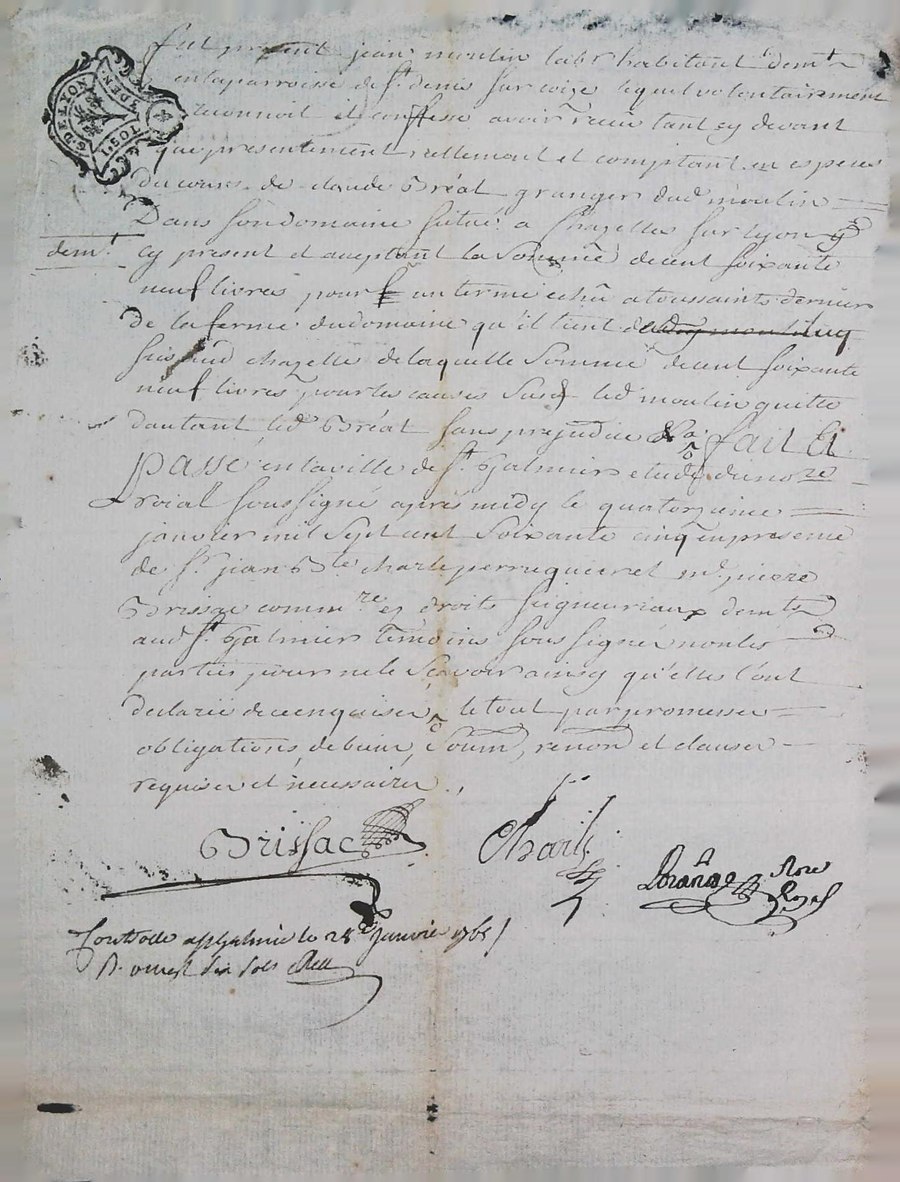 G. DE LYON
1 SOL
3 DEN.
fut present jean moulin labr habitant demt
en la parroisse de st. denis sur coize lequel volontairement
reconnoit et confesse avoir receu tant cy devant
que presentement reellement et comptant en especes
du cours de claude Bréat granger dud moulin
Dans son domaine situé a Chazelles sur lyon y
demt.
cy present et acceptant la Somme de cent soixante
neuf livres pour un terme echu a toussaints dernier
de la ferme du domaine qu'il tient
sis aud chazelle de laquelle Somme de cent soixante
neuf livres pour les causes Susd led moulin quitte
d'autant led Bréat sans prejudice fait Et
passé en la ville de st. Galmier etude du nore
roial soussigné apres midy le quatorzieme
janvier mil Sept cent Soixante cinq en presence
de sr. jean Bte. charle perruquier et me. pierre
Brissac commre es droits seigneuriaux demts
aud st Galmier temoins sous signés non les
parties pour ne le Scavoir ainsy qu'elles l'ont
declaré de ce enquises, le tout par promesses
obligations, de biens, Soum, renon et clauses
requises et necessaires.,
Brissac
Charle
nore
Royal
Controllé a st Galmier le 28e Janvier 1765
R. onze st six sols